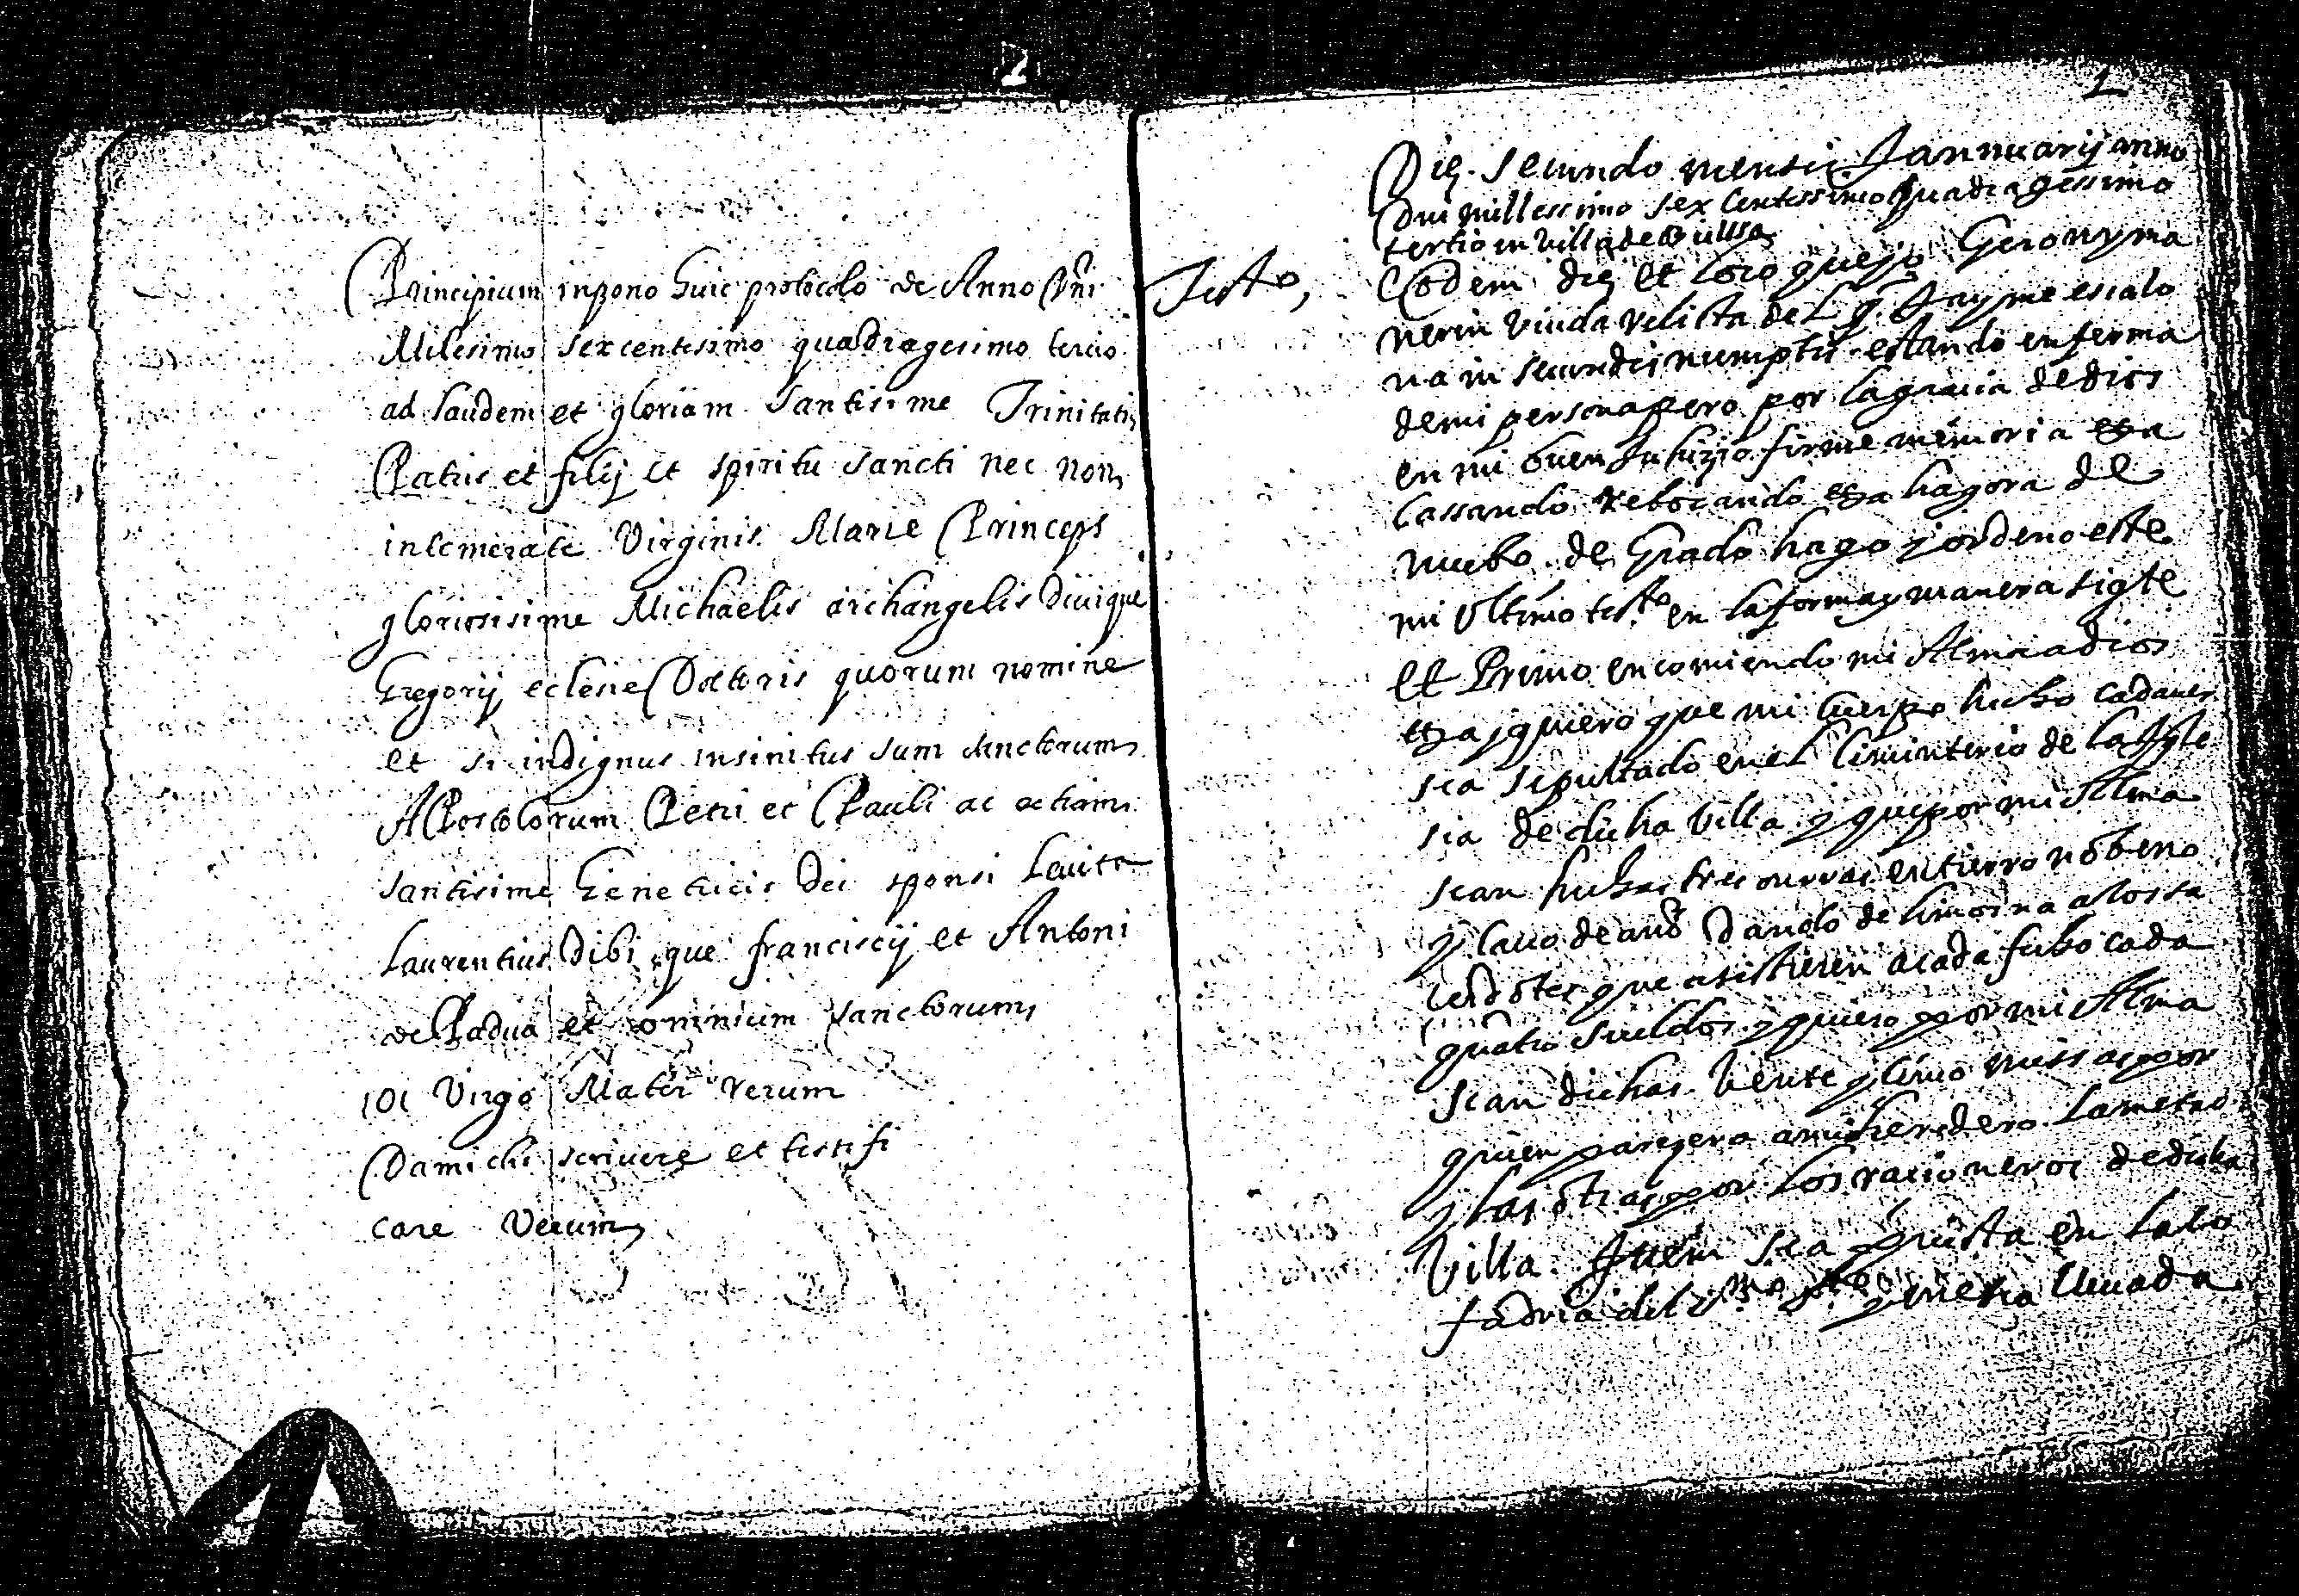 1
Principium inpono huic protocolo de Anno Dni
Milesimo sexcentesimo quadragesimo tercio
ad laudem et gloriam santisime Trinitatis
Patris et filij et spiritu sancti nec non
intemerate Virginis Marie Princeps
gloriosisime Michaelis archangelis Diuique
Gregorij eclesie Doctoris quorum nomine
et si indignus insinitus sum sanctorum
APostolorum Petri et Pauli ac aetiam
santisime Genetricis Dei sponsi Leuite
Laurentius Dibi que franciscij et Antoni
de Padua et omnium sanctorum
Virgo Mater verum
Da michi scriuere et testifi
care Verum
1
Die secundo mensis Jannuarij anno
Dni millessimo sex Centessimo quadragessimo
tertio in villa de
Testto,
Eodem die et loco que yo Geronyma
nerin viuda relicta de L q.º Jayme escalo
na in secundis numptis estando enferma
de mi persona pero por la gracia de dios
en mi buen Juhizio firme memoria etza
Cassando rebocando etza hagora de
nuebo de Grado hago y ordeno este
mi Ultimo testto en la forma y manera sigte
et Primo encomiendo mi Alma a dios
etza y quiero que mi Cuerpo hecho cadauer
sea sepultado en el Ciminterio de la Ygle
sia de dicha Villa y que por mi Alma
sean hechas tres onrras entierro nobeno
y cauo de año Dando de limosna a los sa
cerdotes que asistieren a cada fubo cada
quatro sueldos y quiero por mi Alma
sean dichas vente y cinco missas por
quien parezera a mi heredero la metad
y las otras por los racioneros de dicha
Villa Ytem sea quista en la co
fadria del smo y metra lleuada